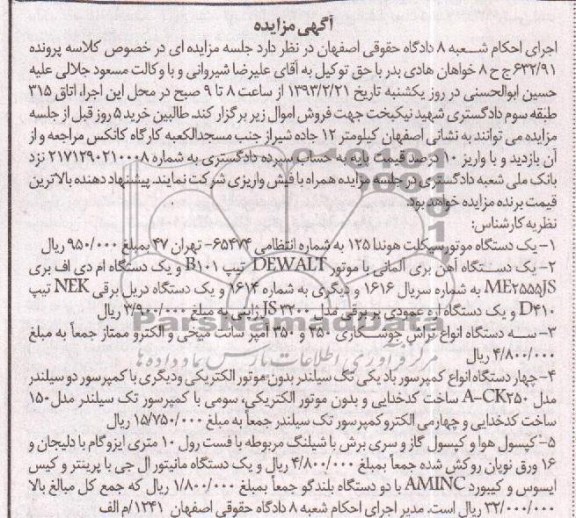 آگهی مزایده
اجرای احکام شعبه ۸ دادگاه حقوقی اصفهان در نظر دارد جلسه مزایده ای در خصوص کلاسه پرونده
۶۳۲/۹۱ ج ح ۸ خواهان هادی بدر با حق توکیل به آقای علیرضا شیروانی و با وکالت مسعود جلالی علیه
حسین ابوالحسنی در روز یکشنبه تاریخ ۱۳۹۳/۲/۲۱ از ساعت ۸ تا ۹ صبح در محل این اجرا، اتاق ۳۱۵
طبقه سوم دادگستری شهید نیکبخت جهت فروش اموال زیر برگزار کند. طالبین خرید ۵ روز قبل از جلسه
مزایده می توانند به نشانی اصفهان کیلومتر ۱۲ جاده شیراز جنب مسجدالکعبه کارگاه کانکس مراجعه و از
آن بازدید و با واریز ۱۰ درصد قیمت پایه به حساب سپرده دادگستری به شماره ۲۱۷۱۲۹۰۲۱۰۰۰۸ نزد
بانک ملی شعبه دادگستری در جلسه مزایده همراه با فیش واریزی شرکت نمایند. پیشنهاد دهنده بالاترین
قیمت برنده مزایده خواهد بود.
نظریه کارشناس:
۱- یک دستگاه موتورسیکلت هوندا ۱۲۵ به شماره انتظامی ۶۵۴۷۴- تهران ۴۷ بمبلغ ۹۵۰/۰۰۰ ریال
۲- یک دستگاه آهن بری آلمانی با موتور DEWALT تیپ B۱۰۱ و یک دستگاه ام دی اف بری
ME۲۵۵۵JS به شماره سریال ۱۶۱۶ و دیگری به شماره ۱۶۱۴ و یک دستگاه دریل برقی NEK تیپ
D۴۱۰ و یک دستگاه اره عمودی بر برقی مدل JS۳۲۰۰ ژاپنی به مبلغ ۳/۹۰۰/۰۰۰ ریال
۳- سه دستگاه انواع ترانس جوشکاری ۲۵۰ و ۳۵۰ آمپر سانت میخی و الکترو ممتاز جمعاً به مبلغ
۴/۸۰۰/۰۰۰ ریال
۴- چهار دستگاه انواع کمپرسور باد یکی تک سیلندر بدون موتور الکتریکی ودیگری با کمپرسور دو سیلندر
مدل A-CK۲۵۰ ساخت کدخدایی و بدون موتور الکتریکی، سومی با کمپرسور تک سیلندر مدل ۱۵۰
ساخت کدخدایی و چهارمی الکتروکمپرسور تک سیلندر جمعاً به مبلغ ۱۵/۷۵۰/۰۰۰ ریال
۵- کپسول هوا و کپسول گاز و سری برش با شیلنگ مربوطه با فست رول ۱۰ متری ایزوگام با دلیجان و
۱۶ ورق نوپان روکش شده جمعاً بمبلغ ۴/۸۰۰/۰۰۰ ریال و یک دستگاه مانیتور ال جی با پرینتر و کیس
ایسوس و کیبورد AMINC با دو دستگاه بلندگو جمعاً بمبلغ ۱/۸۰۰/۰۰۰ ریال که جمع کل مبالغ بالا
۳۲/۰۰۰/۰۰۰ ریال است. مدیر اجرای احکام شعبه ۸ دادگاه حقوقی اصفهان ۱۲۴۱/م الف
ParsNamadData
مرکز فرآوری اطلاعات پارس نماد داده ها